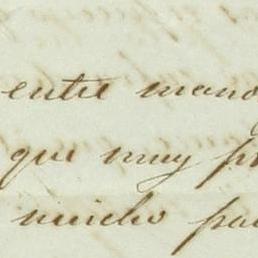 entre mano
que muy p
mucho pa